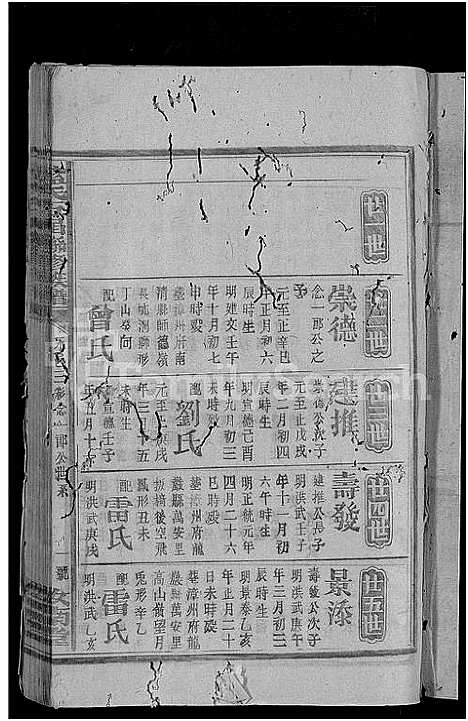 廿一世
廿二世
崇德
念一郎公之
子
元至正辛巳
年正月初六
辰時生
明建文壬午
年十月初七
申時歿
葬漳州府南
清縣師德嶺
丁山癸向
配
曾氏
廿三世
建推
崇德公長子
元至正戊戌
年二月初四
辰時生
明宣德己酉
年九月初三
未時歿
配
劉氏
元至正庚戌
年三月十五
未時生
宣德壬子
年五月十
廿四世
壽發
建推公長子
明洪武壬子
年十一月初
六午時生
明正統元年
四月二十六
巳時歿
葬漳州府龍
巖縣萬安里
後空飛
鳳形丑未
配
雷氏
明洪武庚戌
廿五世
景添
壽發公次子
明洪武庚午
年三月初三
辰時生
明景泰乙亥
年正月二十
日未時歿
葬漳州府龍
巖縣萬安里
高山嶺望月
兎形辛乙
配
雷氏
明洪武乙亥